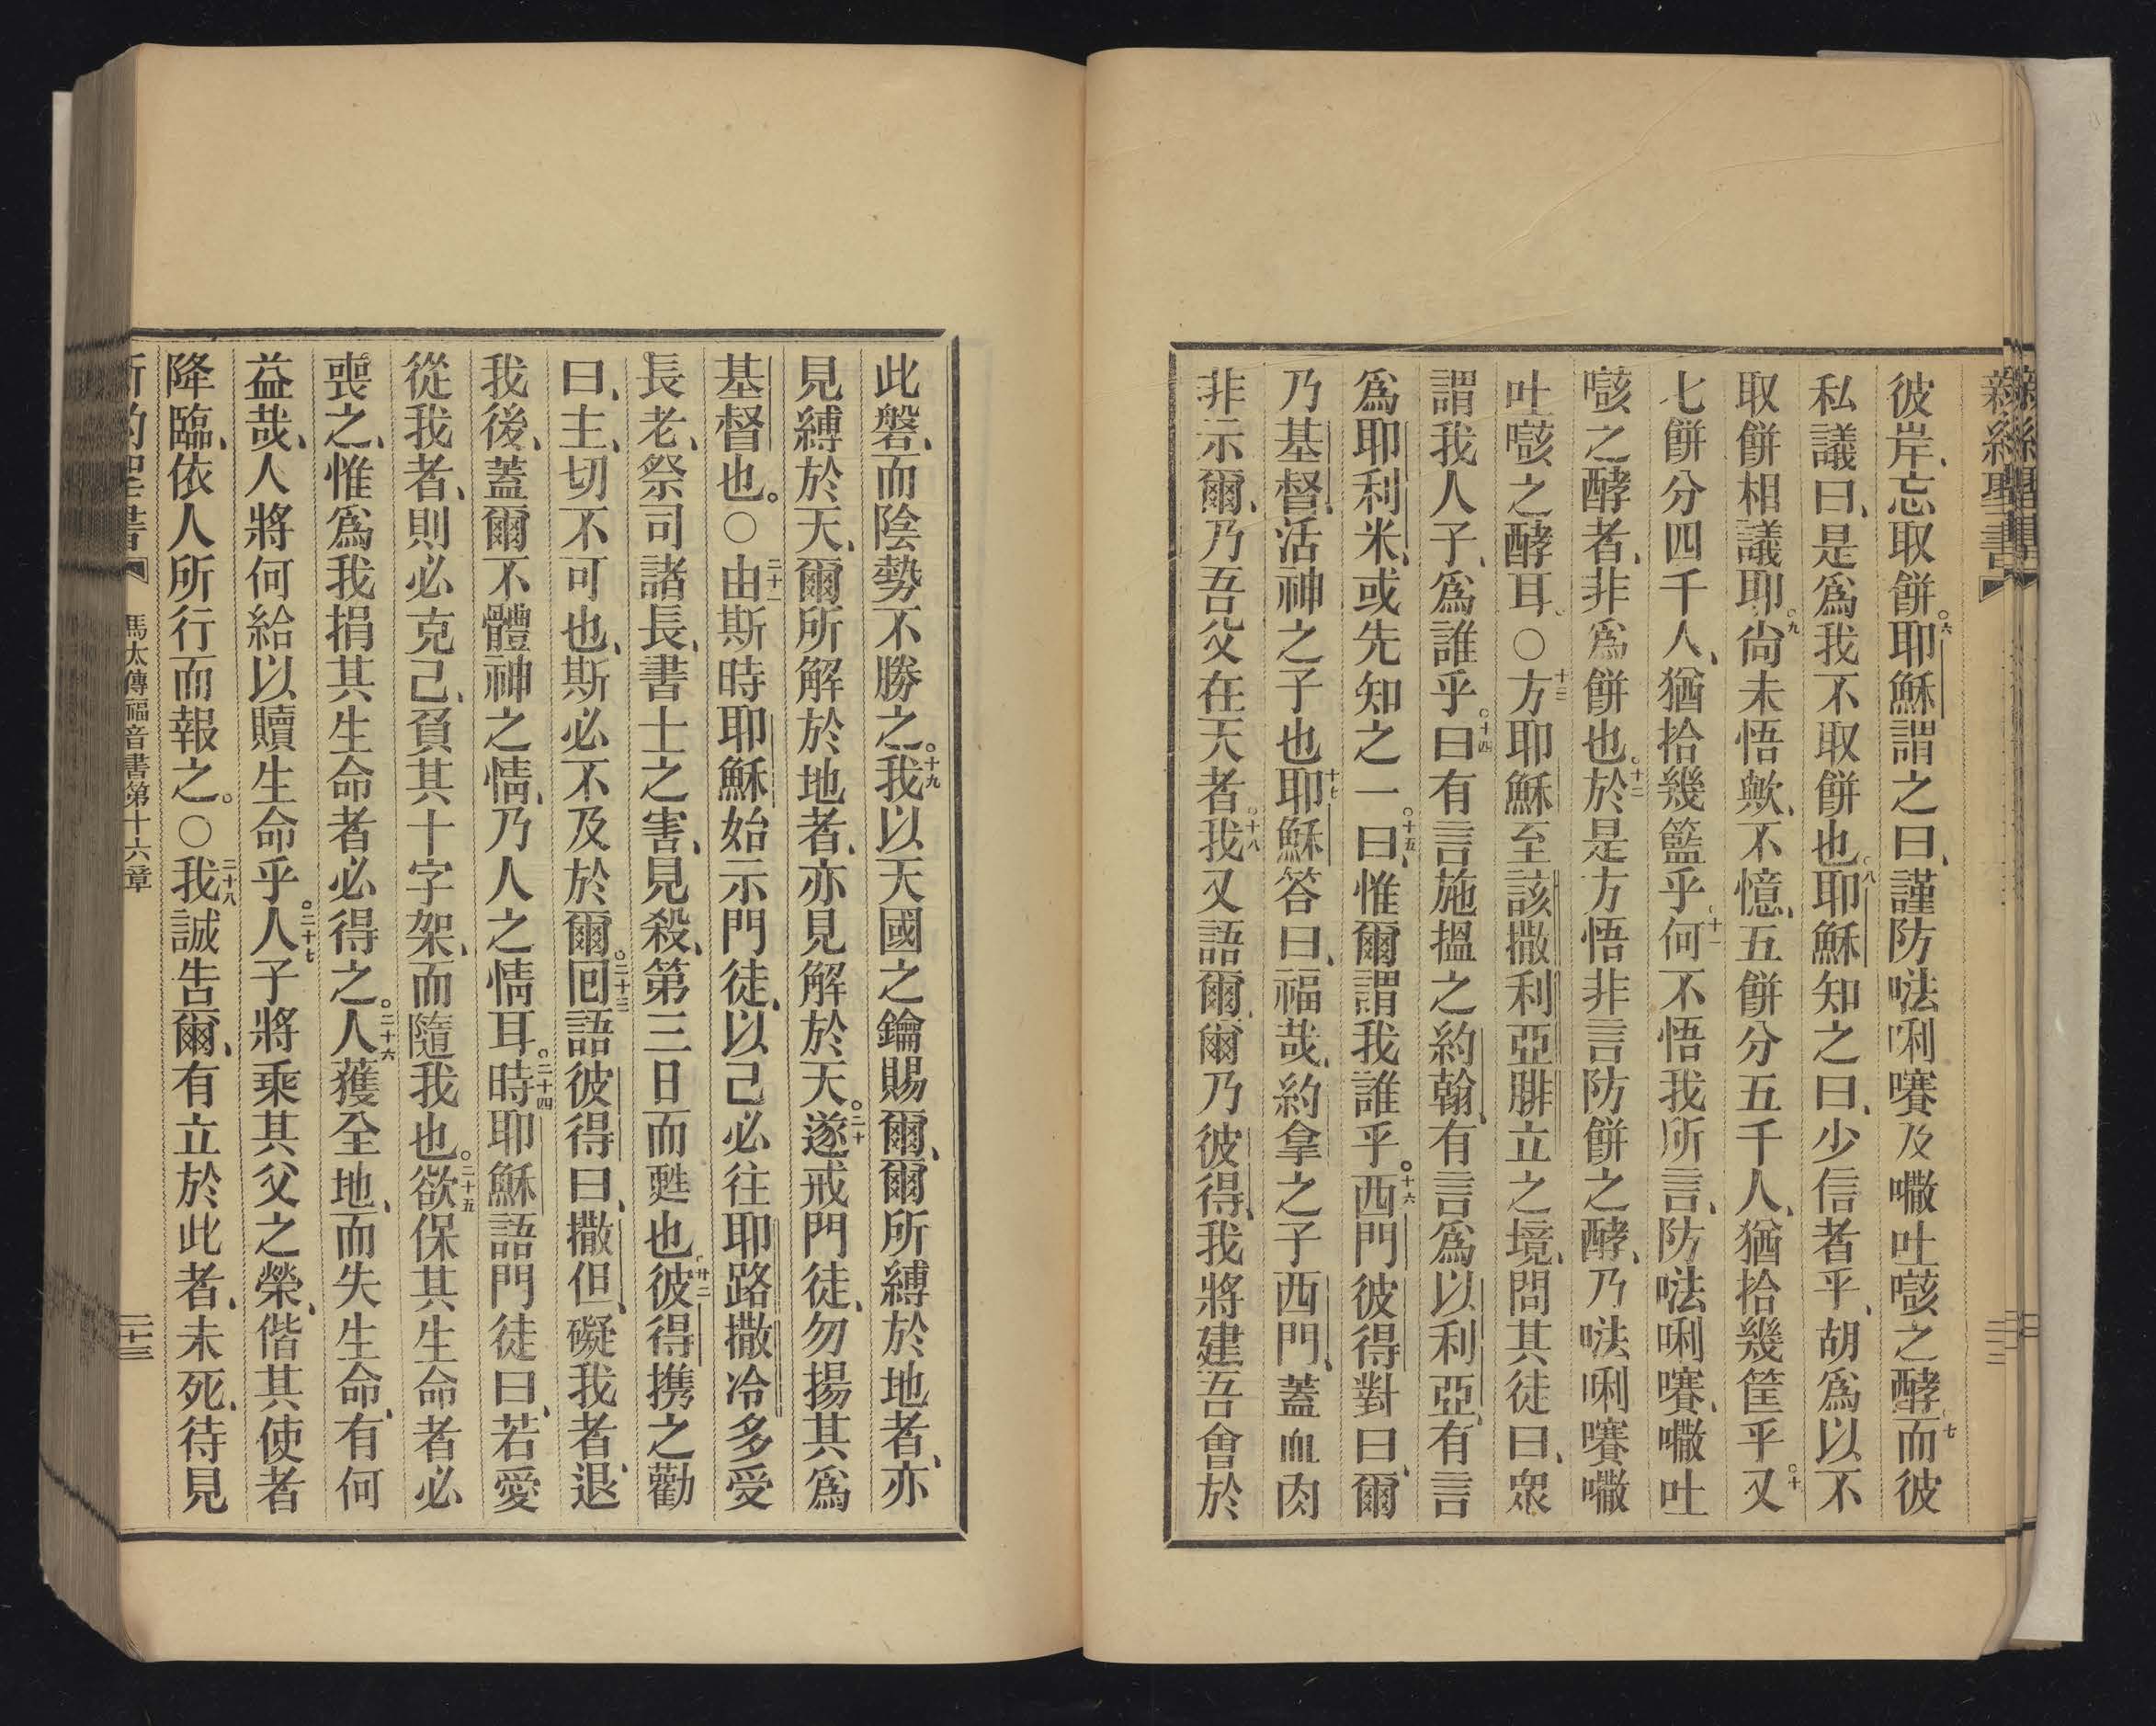 彼岸、忘取餅。六耶穌謂之曰、謹防㗑唎㘔及㘚吐㗡之酵、七而彼
私議曰、是爲我不取餅也。八耶穌知之曰、少信者乎、胡爲以不
取餅相議耶。九尙未悟歟、不憶五餅分五千人、猶拾幾筐乎。十又
七餅分四千人、猶拾幾籃乎。十一何不悟我所言、防㗑唎㘔、㘚吐
㗡之酵者、非爲餅也。十二於是方悟非言防餅之酵、乃㗑唎㘔㘚
吐㗡之酵耳。〇十三方耶穌至該撒利亞腓立之境、問其徒曰、眾
謂我人子、爲誰乎。十四曰有言施搵之約翰、有言爲以利亞、有言
爲耶利米、或先知之一。十五曰、惟爾謂我誰乎。十六西門彼得對曰、爾
乃基督、活神之子也。十七耶穌答曰、福哉、約拿之子西門、蓋血肉
非示爾、乃吾父在天者。十八我又語爾、爾乃彼得、我將建吾會於
此磐、而陰勢不勝之。十九我以天國之鑰賜爾、爾所縛於地者、亦
見縛於天、爾所解於地者、亦見解於天。二十遂戒門徒、勿揚其爲
基督也。〇二十一由斯時耶穌始示門徒、以己必往耶路撒冷多受
長老、祭司諸長、書士之害、見殺、第三日而甦也。廿二彼得攜之勸
曰、主、切不可也、斯必不及於爾。二十三回語彼得曰、撒但、礙我者、退
我後、蓋爾不體神之情、乃人之情耳。二十四時耶穌語門徒曰、若愛
從我者、則必克己、負其十字架、而隨我也。二十五欲保其生命者必
喪之、惟爲我捐其生命者必得之。二十六人獲全地、而失生命、有何
益哉、人將何給以贖生命乎。二十七人子將乘其父之榮、偕其使者
降臨、依人所行而報之。〇二十八我誠告爾、有立於此者、未死、待見
馬太傳福音書第十六章
二十三